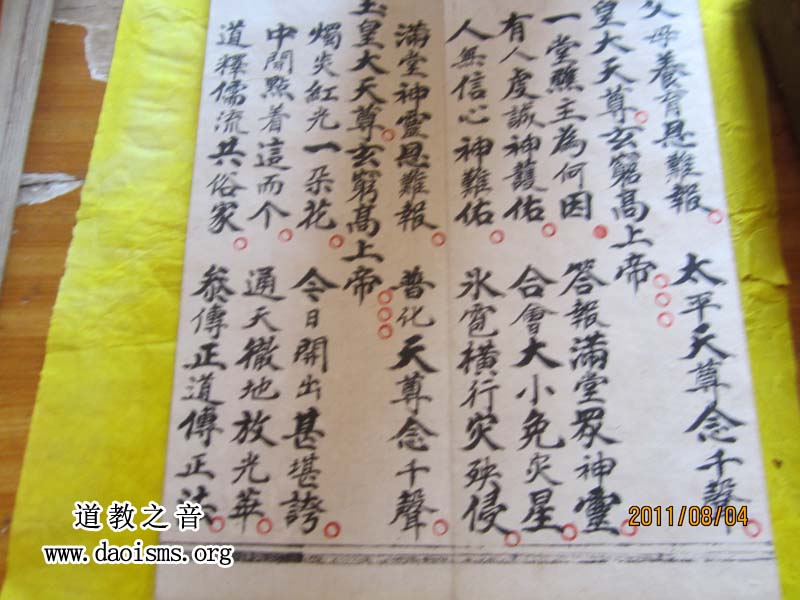 父母養育恩難報 太平天尊念千聲
皇大天尊玄窮高上帝
一堂醮主為何因 答報滿堂眾神靈
有人虔誠神護佑 合會大小免灾星
人無信心神難佑 氷雹橫行灾殃侵
滿堂神靈恩難報 普化天尊念千聲
玉皇大天尊玄窮高上帝
燭炎紅光一朵花 今日開出甚堪誇
中間點着這而个 通天徹地放光華
道釋儒流共俗家 叅傳正道傳正
道教之音
www.daoisms.org
2011/08/04